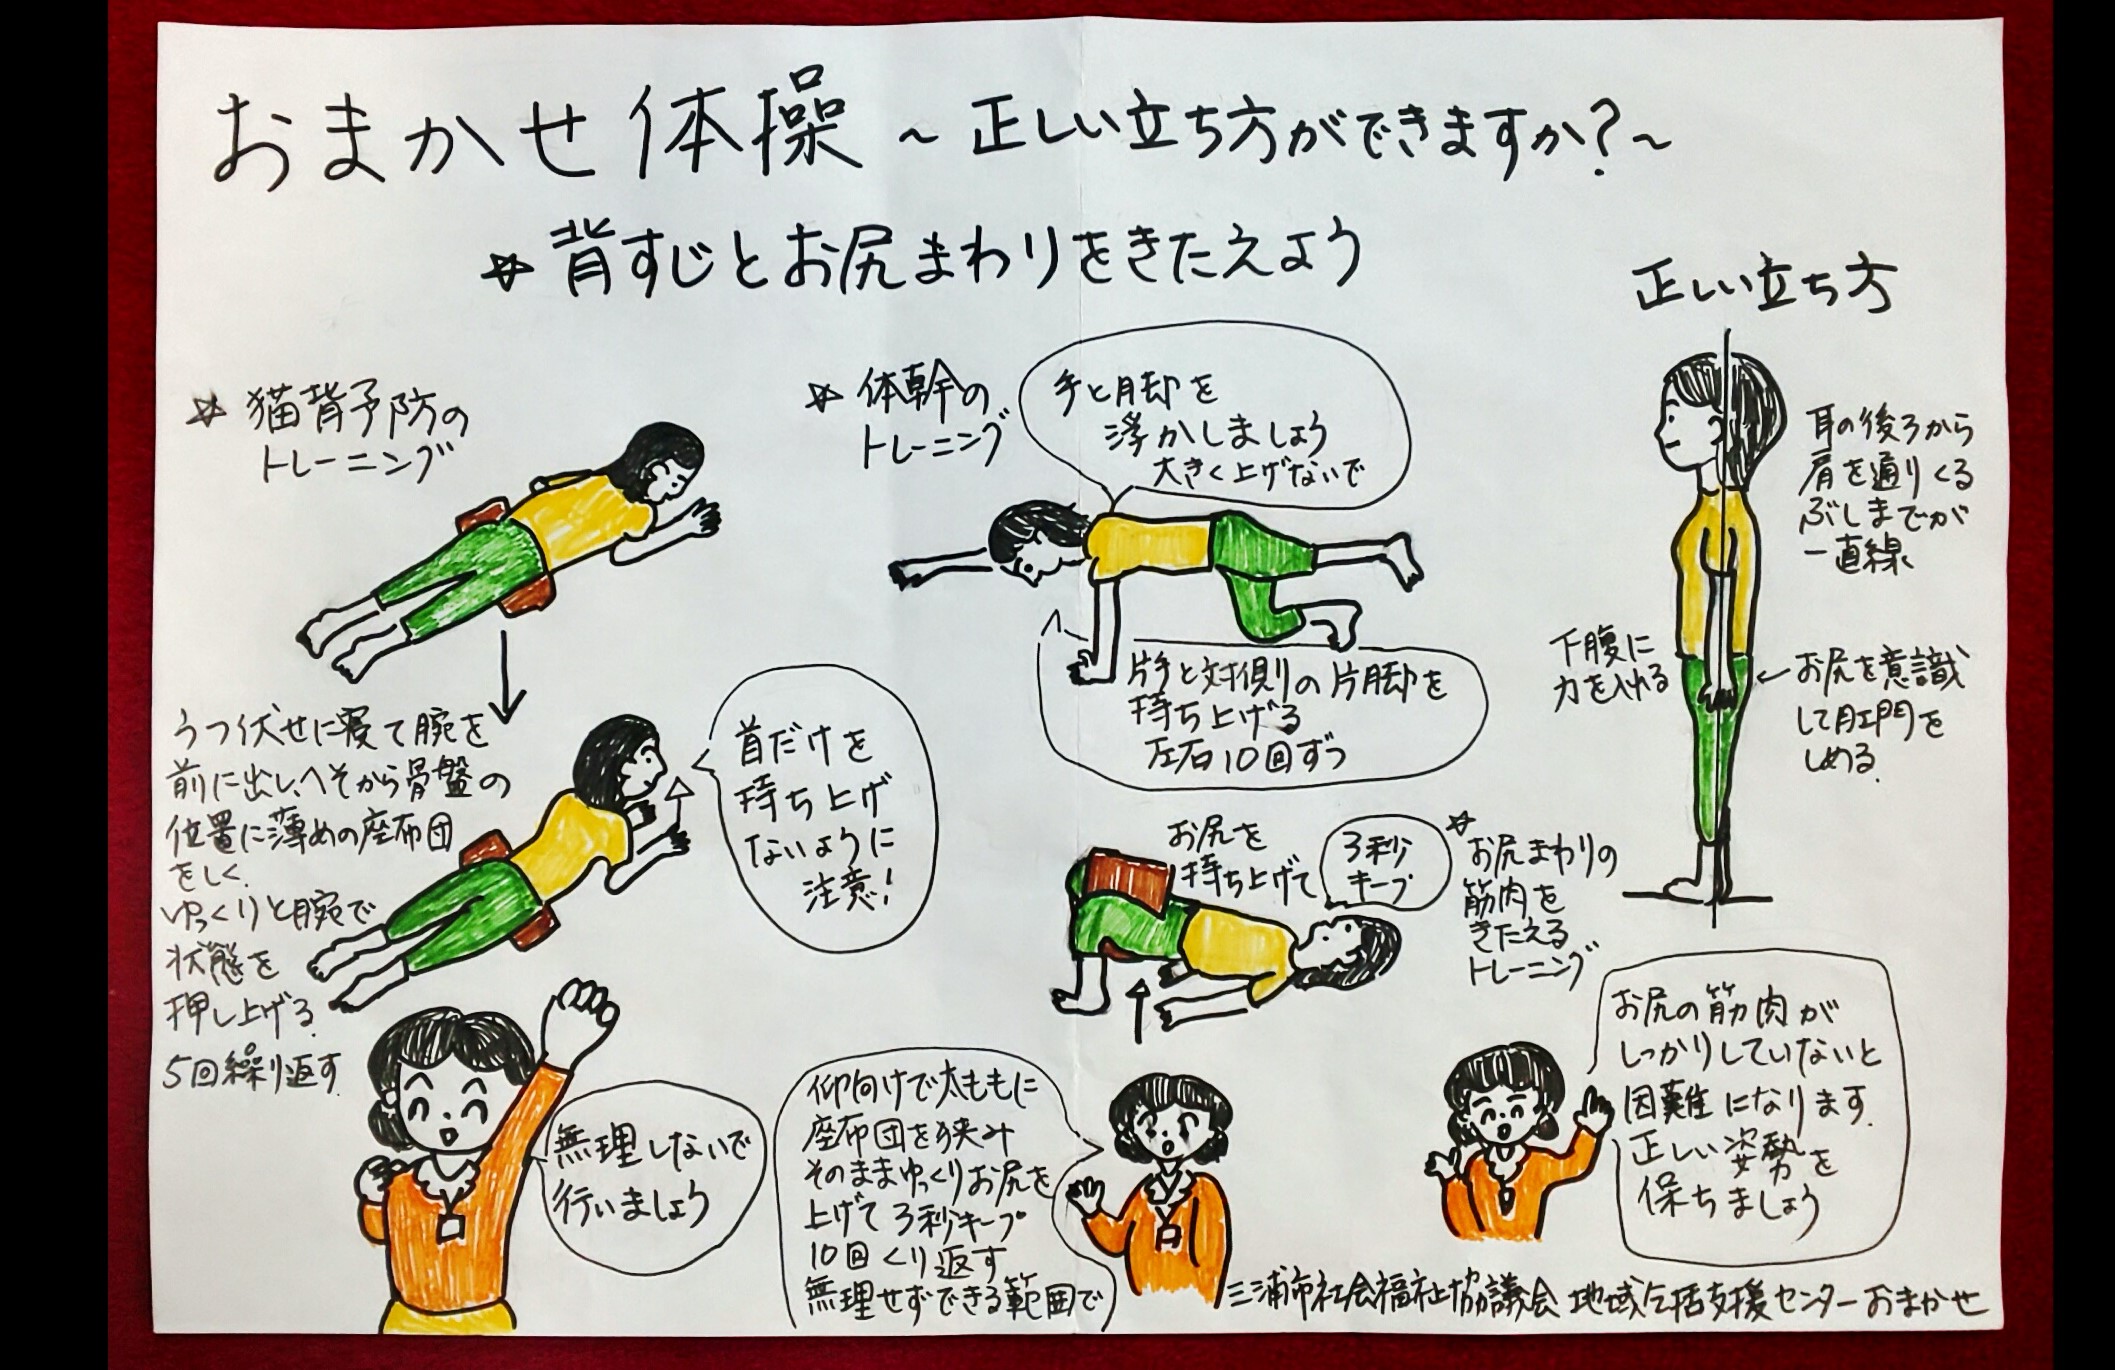 おまかせ体操 ～正しい立ち方ができますか？～
☆背すじとお尻まわりをきたえよう
☆猫背予防の
トレーニング
うつ伏せに寝て腕を
前に出し、へそから骨盤の
位置に薄めの座布団
をしく。
ゆっくりと腕で
状態を
押し上げる。
5回繰り返す
首だけを
持ち上げ
ないように
注意！
無理しないで
行いましょう
☆体幹の
トレーニング
手と脚を
浮かしましょう
大きく上げないで
片手と対側の片脚を
持ち上げる
左右10回ずつ
お尻を
持ち上げて
3秒
キープ
☆
お尻まわりの
筋肉を
きたえる
トレーニング
仰向けで太ももに
座布団を狭み
そのままゆっくりお尻を
上げて3秒キープ
10回くり返す
無理せずできる範囲で
正しい立ち方
耳の後ろから
肩を通りくる
ぶしまでが
一直線
下腹に
力を入れる
お尻を意識
して肛門を
しめる。
お尻の筋肉が
しっかりしていないと
困難になります。
正しい姿勢を
保ちましょう
三浦市社会福祉協議会 地域包括支援センターおまかせ